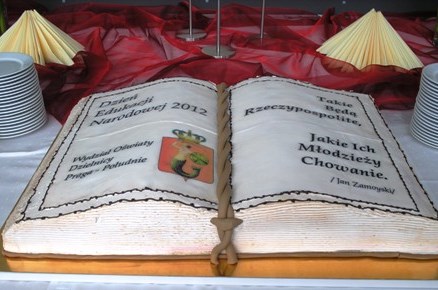 Dzień
Edukacji
Narodowej 2012
Wydział Oświaty
Dzielnicy
Praga - Południe
Takie
Będą
Rzeczypospolite,
Jakie Ich
Młodzieży
Chowanie.
/ Jan Zamoyski/